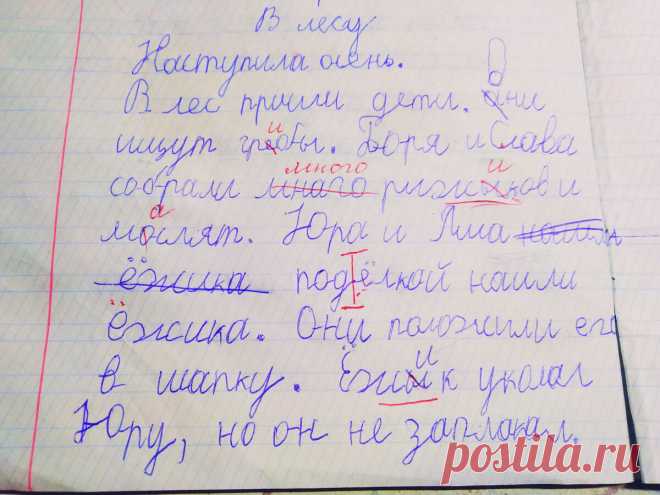 В лесу
Наступила осень.
В лес пришли дети. Они
ищут гребы. Боря и Слава
и
много
собрали мнаго рижыков и
и
а
мослят. Юра и Яша нашли
ёжика под ёлкой нашли
ёжика. Они положили его
в шапку. Ёжык уколол
и
Юру, но он не заплакал.
postila.ru